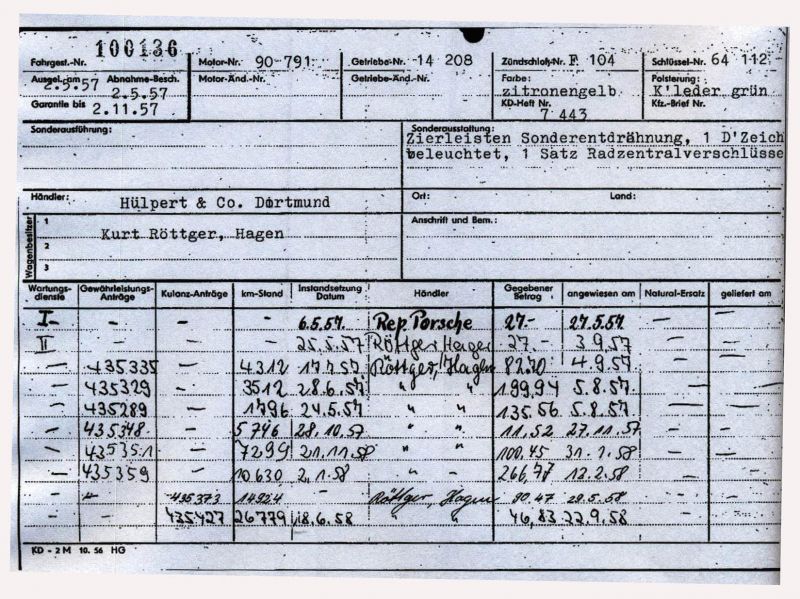 Fahrgest.-Nr. 100136 Motor-Nr. 90-791 Getriebe-Nr. 14 208 Zündschloß-Nr. F 104 Schlüssel-Nr. 64 112
Ausgel. am 2.5.57 Abnahme-Besch. 2.5.57 Motor-Änd.-Nr. Getriebe-Änd.-Nr. Farbe: zitronengelb Polsterung: K'leder grün
Garantie bis 2.11.57 KD-Heft Nr. 7 443 Kfz.-Brief Nr.
Sonderausführung: Sonderausstattung:
Zierleisten Sonderentdrähnung, 1 D'Zeich
beleuchtet, 1 Satz Radzentralverschlüsse
Händler: Hülpert & Co. Dortmund Ort: Land:
Wagenbesitzer 1 Kurt Röttger, Hagen Anschrift und Bem.:
2
3
Wartungsdienste Gewährleistungs-Anträge Kulanz-Anträge km-Stand Instandsetzung Datum Händler Gegebener Betrag angewiesen am Natural-Ersatz geliefert am
I - - - 6.5.57. Rep. Porsche 27.- 27.5.57 - -
II - - - 25.5.57 Röttger Hagen 27.- 3.9.57 - -
- 435335 - 4312 17.7.57 Röttger, Hagen 82.70 4.9.57 - -
- 435329 - 3512 28.6.57 " " 199,94 5.8.57 - -
- 435289 - 1796 24.5.57 " " 135.56 5.8.57 - -
- 435348 - 5746 28.10.57 " " 11,52 27.11.57 - -
- 435351 - 7299 21.11.58 " " 100,45 31.1.58 - -
- 435359 - 10630 2.1.58 " " 266,77 12.2.58 - -
- " 435373 14924 - Röttger, Hagen 90.47 28.5.58 - -
- - 435427 26779 18.6.58 " " 46,83 22.9.58 - -
KD - 2 M 10. 56 HG